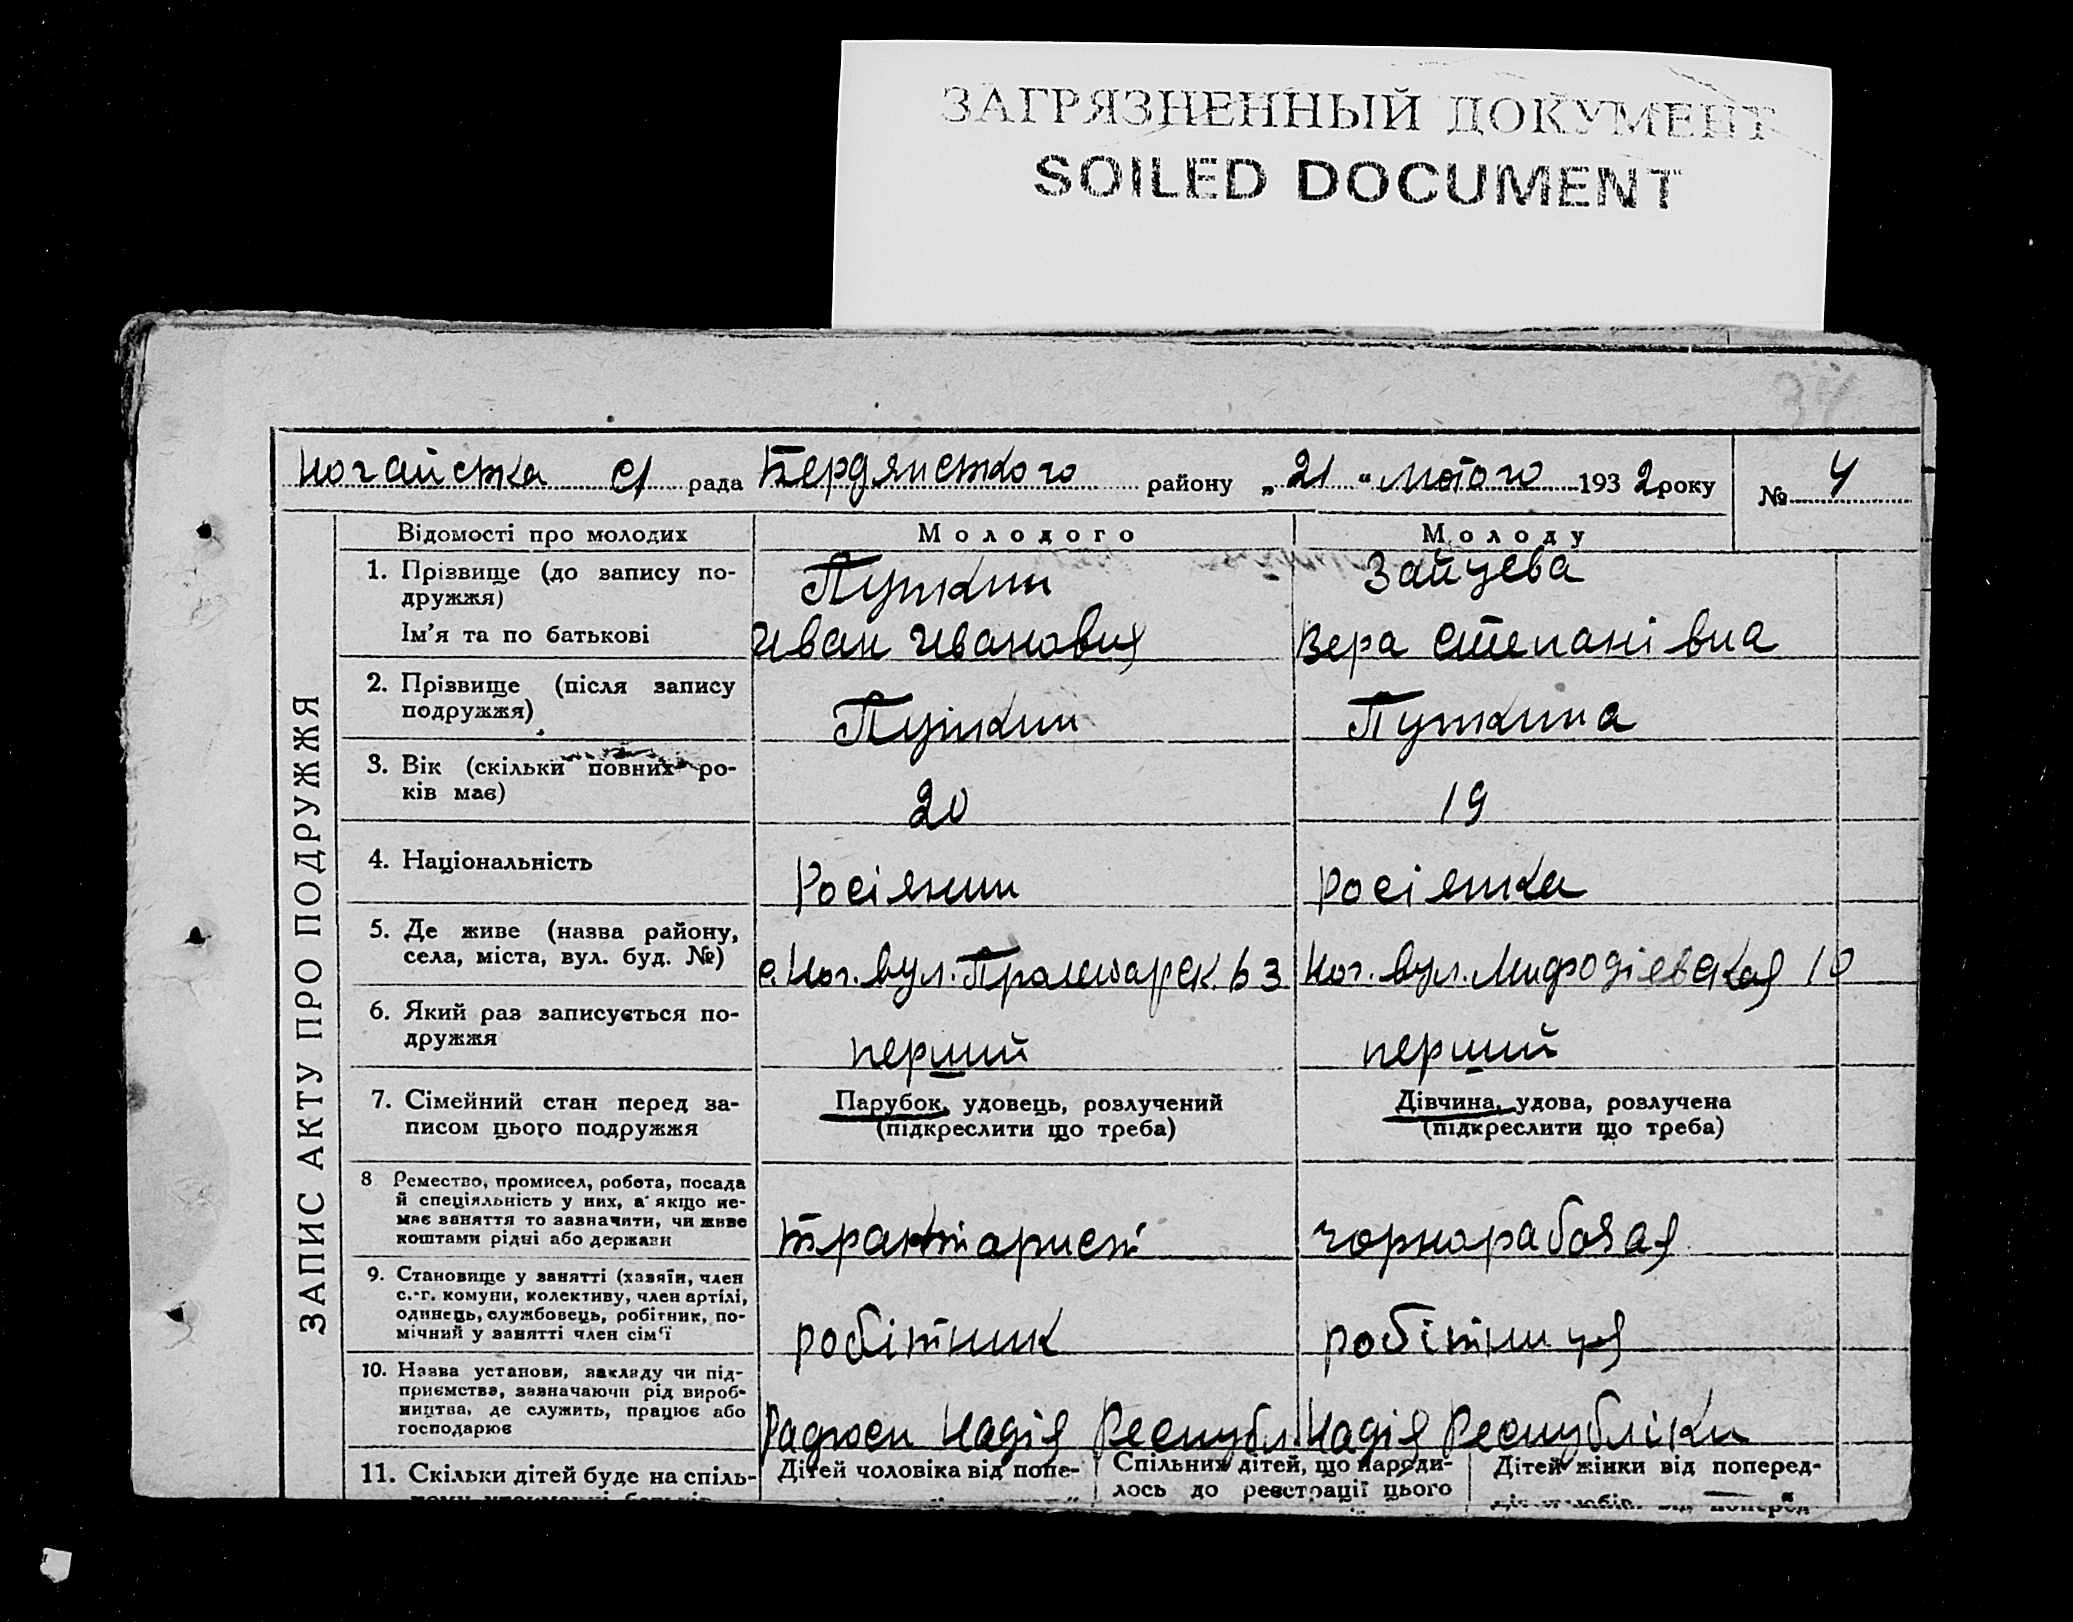 ЗАГРЯЗНЕННЫЙ ДОКУМЕНТ
SOILED DOCUMENT
34
Ногайська с/ рада Бердянського району „21“ лютого 1932 року № 4
ЗАПИС АКТУ ПРО ПОДРУЖЖЯ
Відомості про молодих Молодого Молоду
1. Прізвище (до запису по-
дружжя) Пушкин Зайцева
Ім'я та по батькові Иван Иванович Вера Степанівна
2. Прізвище (після запису
подружжя) Пушкин Пушкина
3. Вік (скільки повних ро-
ків має) 20 19
4. Національність Росіянин росіянка
5. Де живе (назва району,
села, міста, вул. буд. №) с. Ног. вул. 63 Ног. вул. Мифодіевская 10
6. Який раз записується по-
дружжя перший перший
7. Сімейний стан перед за-
писом цього подружжя
Парубок, удовець, розлучений
(підкреслити що треба)
Дівчина, удова, розлучена
(підкреслити що треба)
8 Ремество, промисел, робота, посада
й спеціяльність у них, а якщо не-
має заняття то зазначити, чи живе
коштами рідні або держави трактарист чорнорабочая
9. Становище у занятті (хазяїн, член
с.-г. комуни, колективу, член артілі,
одинець, службовець, робітник, по-
мічний у занятті член сім'ї робітник робітниця
10. Назва установи, закладу чи під-
приємства, зазначаючи рід вироб-
ництва, де служить, працює або
господарює Надія Республ. Надія Республіки
11. Скільки дітей буде на спіль-
Дітей чоловіка від попе-
Спільних дітей, що народи-
лось до реєстрації цього
Дітей жінки від поперед-